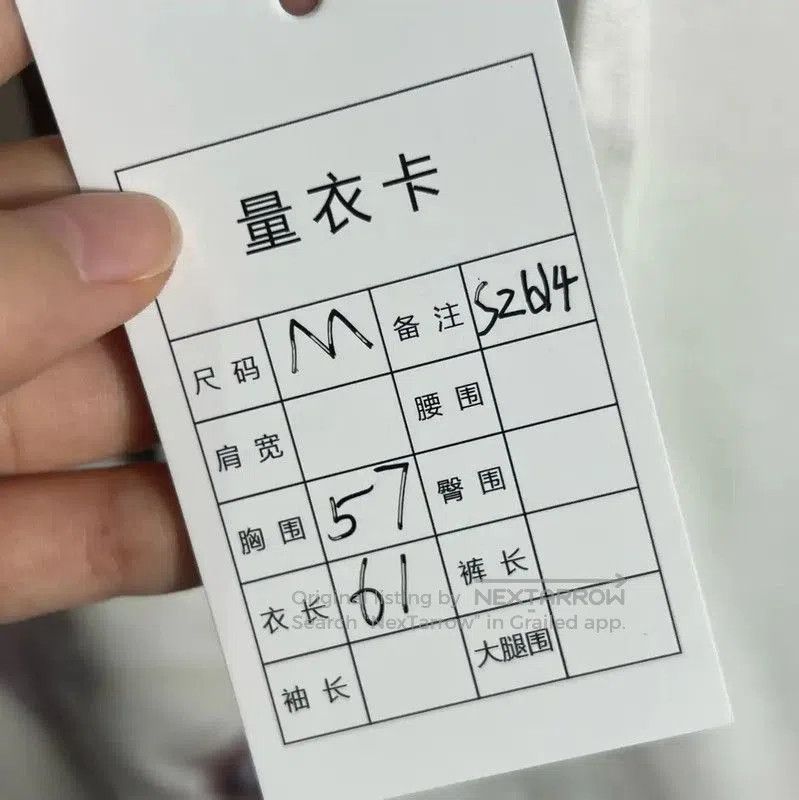 量衣卡
尺码 M 备注 S2614
肩宽 腰围
胸围 57 臀围
衣长 61 裤长
袖长 大腿围
Original listing by NEXTARROW
Search "NexTarrow" in Grailed app.